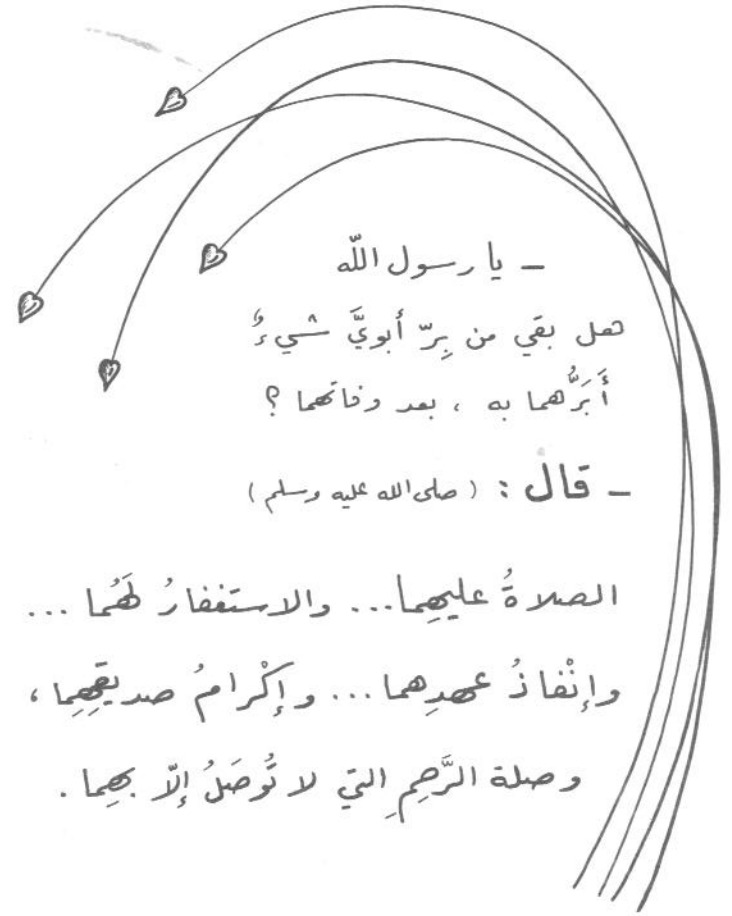 – يا رسول اللّه
هل بقي من بِرّ أبويَّ شيءٌ
أَبَرُّهما به ، بعد وفاتهما ؟
– قال : ( صلى الله عليه وسلم )
الصلاةُ عليهِما... والاستغفارُ لَهُما ...
وإنْفاذُ عهدِهما ... وإكْرامُ صديقِهِما ،
وصلة الرَّحِمِ التي لا تُوصَلُ إلّا بهِما .